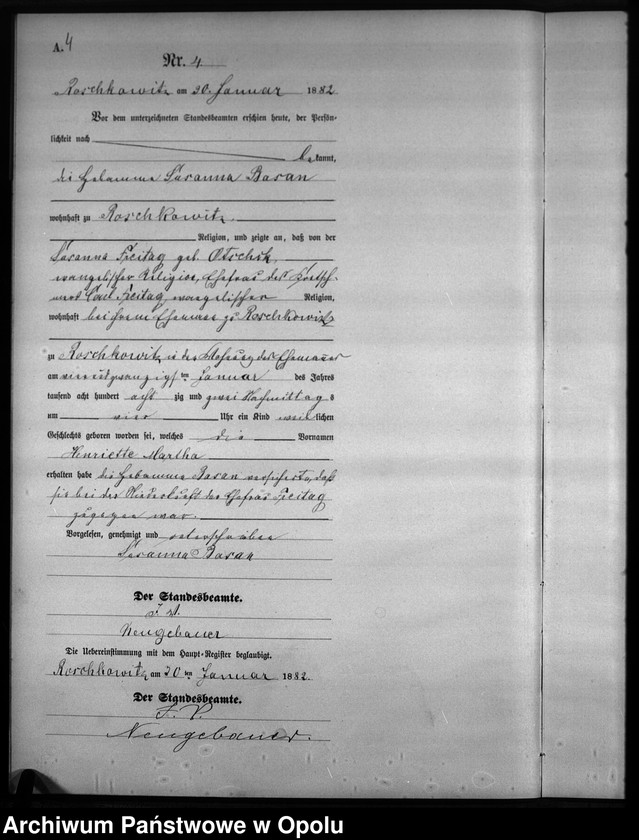 A. 4
Nr. 4
Roschkowitz am 30. Januar 1882
Vor dem unterzeichneten Standesbeamten erschien heute, der Persön-
lichkeit nach
bekannt,
die Hebamme Susanna Baran
wohnhaft zu Roschkowitz
Religion, und zeigte an, daß von der
Susanna Freitag geb.
evangelischer Religion, Ehefrau des
Carl Freitag, evangelischer Religion,
wohnhaft bei ihrem Ehemann zu Roschkowitz
zu Roschkowitz in der Wohnung des Ehemannes
am vierundzwanzigsten Januar des Jahres
tausend acht hundert achtzig und zwei Nachmittags
um vier Uhr ein Kind weiblichen
Geschlechts geboren worden sei, welches die Vornamen
Henriette Martha
erhalten habe die Hebamme Baran versicherte, daß
sie bei der Niederkunft der Ehefrau Freitag
zugegen war.
Vorgelesen, genehmigt und unterschrieben
Susanna Baran
Der Standesbeamte.
Neugebauer
Die Uebereinstimmung mit dem Haupt-Register beglaubigt.
Roschkowitz am 30 ten Januar 1882.
Der Standesbeamte.
J. V.
Neugebauer.
Archiwum Państwowe w Opolu